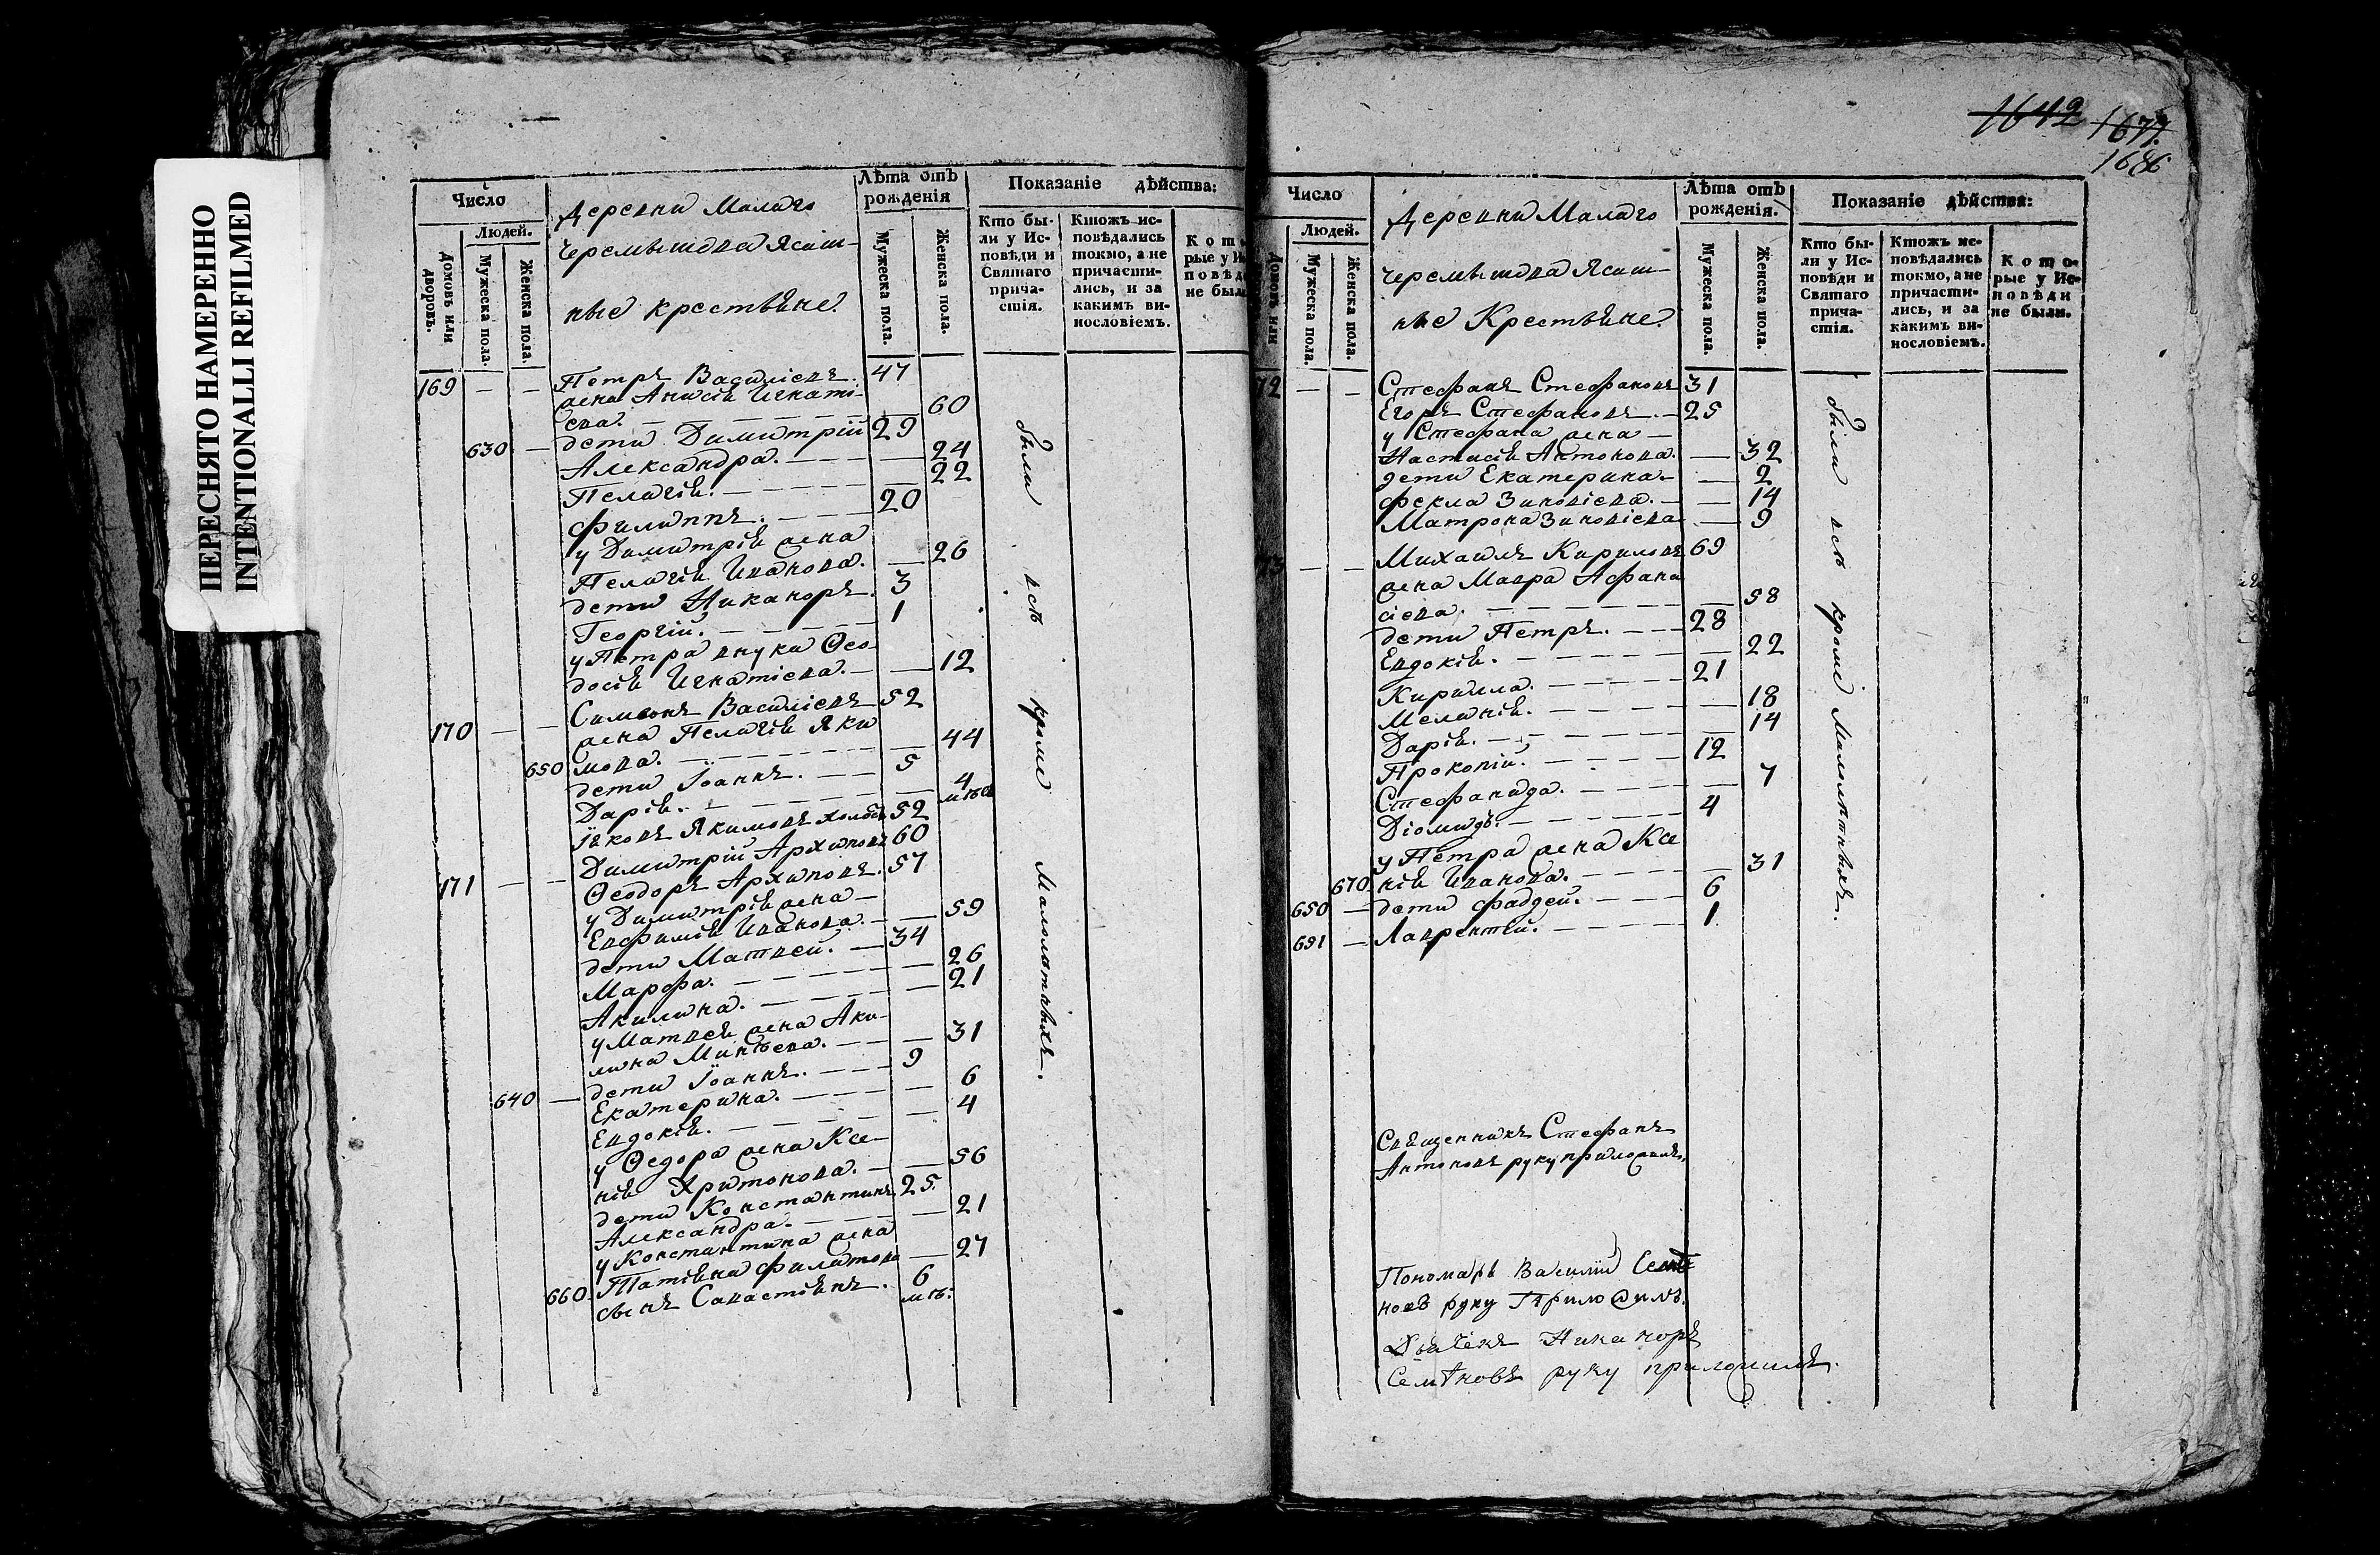 ПЕРЕСНЯТО НАМЕРЕННО
INTENTIONALLI REFILMED
Число
Людей.
Домовъ или дворовъ.
Мужеска пола.
Женска пола.
Деревни Малаго
Черемышева Ясаш-
ные крестьяне.
Лѣта отъ рожденія
Мужеска пола.
Женска пола.
Показаніе дѣйства:
Кто бы-
ли у Ис-
повѣди и
Святаго
прича-
стія.
Ктожъ ис-
повѣдались
токмо, а не
причасти-
лись, и за
какимъ ви-
нословіемъ.
Кото
рые у И
повѣд
не были
169 — — Петръ Василіевъ. 47
жена Анисія Игнаті-
ева. — 60
630 — дети Димитрій 29
Александра. — 24
Пелагія. — 22
Филиппъ. — 20
у Димитрія жена
Пелагія Иванова. — 26
дети Никаноръ. 3
Георгій. — 1
у Петра внука Ѳео-
досія Игнатіева. — 12
170 — — Симеонъ Василіевъ 52
жена Пелагія Яки
650 мова. — 44
дети Іоаннъ. — 5
Дарія. — 4 мѣс
Яковъ Якимовъ 52
171 — — Димитрій Архиповъ 60
Ѳеодоръ Архиповъ. 57
у Димитрія жена —
Евфимія Иванова. — 59
дети Матвей. — 34
Марфа. — 26
Акилина. — 21
у Матвея жена Аки-
лина Минѣева. — 31
640 — дети Іоаннъ. — 9
Екатерина. — 6
Евдокія. — 4
у Ѳедора жена Ксе-
нія Харитонова. — 56
дети Константинъ 25
Александра. — 21
у Константина жена
660 Татіяна Филатова — 27
сынъ Савастіянъ. 6 мѣ:
были всѣ кроме малолѣтныхъ.
1642 1677.
1686
Число
Людей.
Домовъ или
Мужеска пола.
Женска пола.
Деревни Малаго
Черемышева Ясаш-
ные Крестьяне.
Лѣта отъ рожденія.
Мужеска пола.
Женска пола.
Показаніе дѣйства:
Кто бы-
ли у Ис-
повѣди и
Святаго
прича-
стія.
Ктожъ ис-
повѣдались
токмо, а не
причасти-
лись, и за
какимъ ви-
нословіемъ.
Кото-
рые у Ис-
повѣди
не были.
72 — — Стефанъ Стефановъ 31
Егоръ Стефановъ. — 25
у Стефана жена —
Настасія Антонова — 32
дети Екатерина. — 2
Фекла Зиновіева. — 14
Матрона Зиновіева — 9
73 — — Михаилъ Кириловъ 69
жена Мавра Афана
сіева. — 58
дети Петръ. — 28
Евдокія. — 22
Кирилла. — 21
Меланія. — 18
Дарія. — 14
Прокопій. — 12
Стефанида. — 7
Діомидъ. — 4
у Петра жена Ксе
670 нія Иванова. — 31
650 — дети Фаддей. — 6
651 — Лаврентій. — 1
были всѣ кромѣ малолѣтныхъ.
Священникъ Стефанъ
Антоновъ руку приложилъ.
Пономарь Василий Семе
новъ руку Приложилъ.
Дьячекъ Никаноръ
Семѣновъ руку приложилъ.